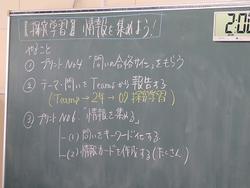 探究学習② 情報を集めよう!
やること
① プリントNo4 「問いの合格サイン」をもらう
② テーマ・問いをTeamsから報告する
(Teams→24→09探究学習)
③ プリントNo6 「情報を集める」
(1) 問いをキーワード化する
(2) 情報カードを作成する(たくさん)
2:0